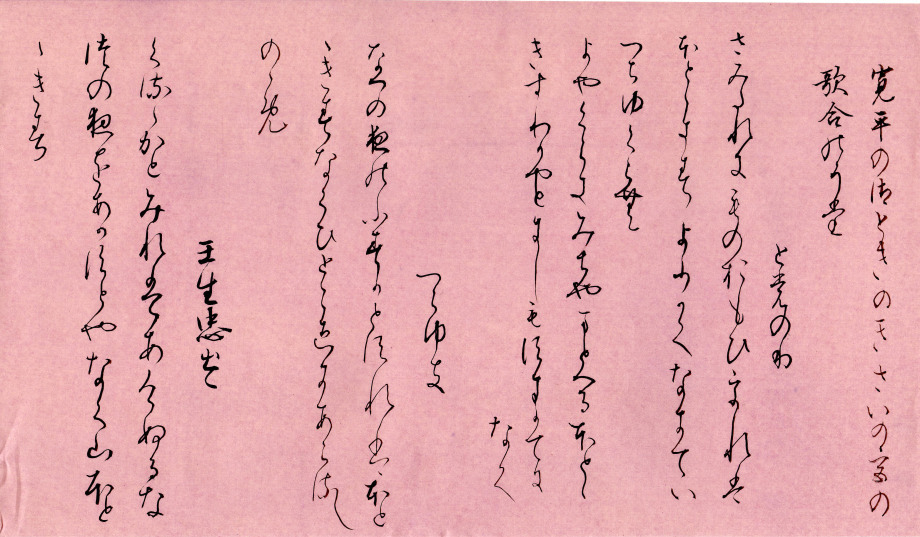 寛平の御ときのきさいの宮の
歌合のうた
とものり
さみたれにものおもひをれは
ほとゝきすよふかくなきてい
つちゆくらむ
よやくらきみちやまとへるほとゝ
きすわかやとをしもすきかてに
なく
つらゆき
なつの夜のふすかとすれはほと
ゝきすなくひとこゑにあくるし
のゝめ
壬生忠岑
くるゝかとみれはあけぬるな
つの夜をあかすとやなく山ほと
ゝきす